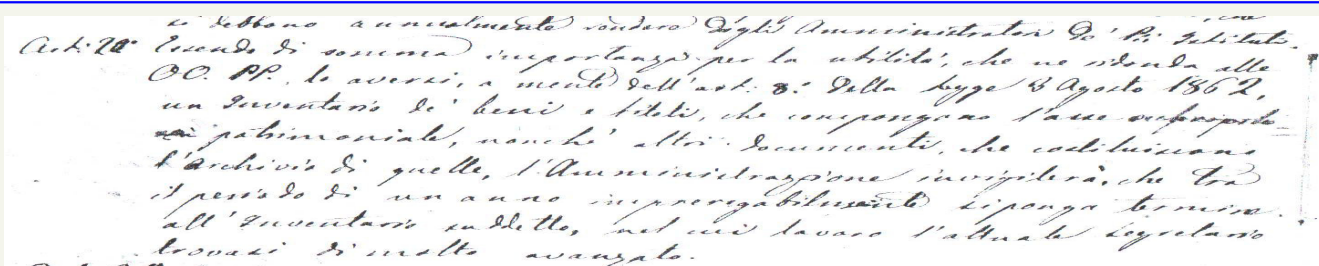 si debbono annualmente rendere dagli Amministratori de' Pii Istituti.
Art: 20° Essendo di somma importanza per la utilità, che ne ridonda alle
OO. PP. lo aversi, a mente dell'art: 8: della legge 3 Agosto 1862,
un Inventario de' beni e titoli, che compongono l'asse
patrimoniale, nonchè altri documenti, che costituiscono
l'archivio di quelle, l'Amministrazione invigilerà, che tra
il periodo di un anno improrogabilmente si ponga termine
all'Inventario suddetto, nel cui lavoro l'attuale segretario
trovasi di molto avanzato.